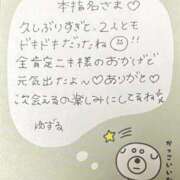 本指名さま♡
久しぶりすぎて、2人とも
ドキドキだったね 😊!!
全肯定ニキ様のおかげで
元気出たよん♡ありがと♡
次会えるの楽しみにしてますね☆
ゆずる